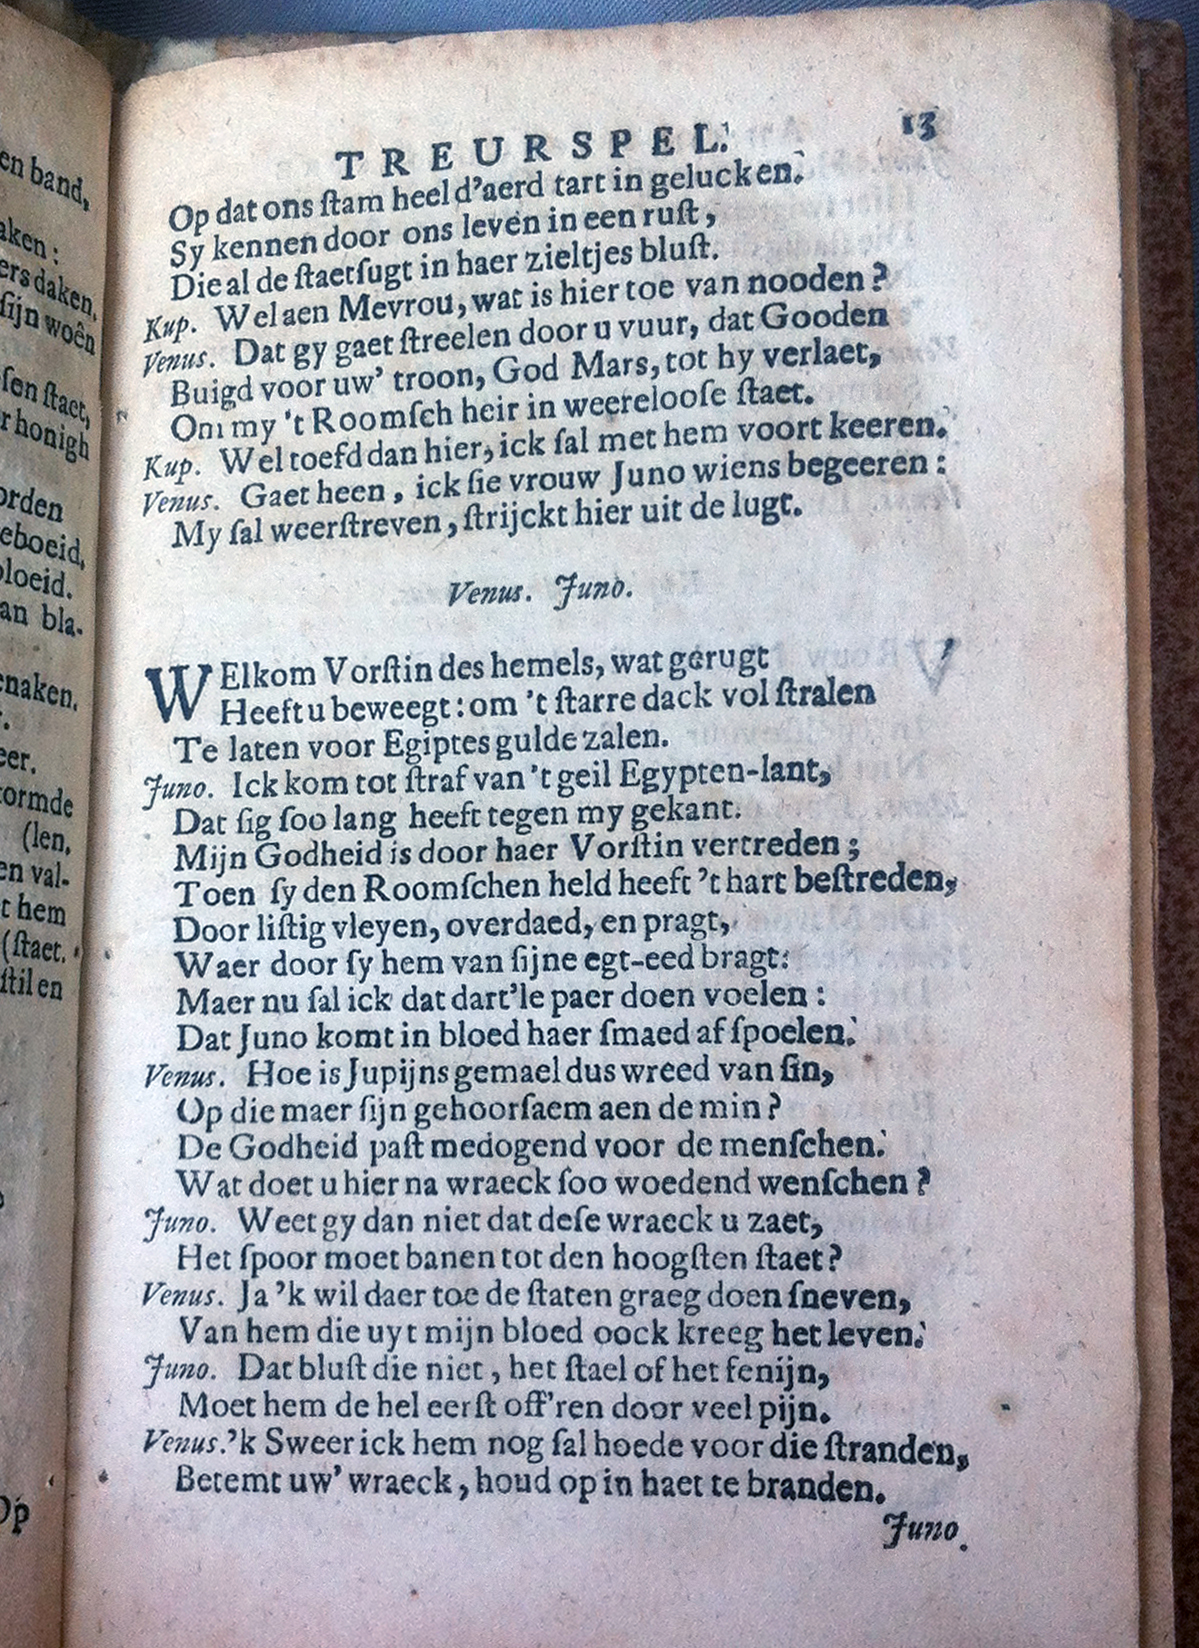 en band,
aken:
ers daken,
sijn woên
sen staet,
r honigh
orden
eboeid,
loeid.
an bla-
enaken.
eer.
tormde
(len,
en val-
t hem
(staet.
stil en
Op
TREURSPEL. 13
Op dat ons ſtam heel d'aerd tart in gelucken.
Sy kennen door ons leven in een ruſt,
Die al de ſtaetſugt in haer zieltjes bluſt.
Kup. Wel aen Mevrou, wat is hier toe van nooden?
Venus. Dat gy gaet ſtreelen door u vuur, dat Gooden
Buigd voor uw' troon, God Mars, tot hy verlaet,
Om my 't Roomſch heir in weereloofe ſtaet.
Kup. Wel toefd dan hier, ick ſal met hem voort keeren.
Venus. Gaet heen, ick ſie vrouw Juno wiens begeeren:
My ſal weerſtreven, ſtrijckt hier uit de lugt.
Venus. Juno.
WElkom Vorſtin des hemels, wat gerugt
Heeft u beweegt: om 't ſtarre dack vol ſtralen
Te laten voor Egiptes gulde zalen.
Juno. Ick kom tot ſtraf van 't geil Egypten-lant,
Dat ſig ſoo lang heeft tegen my gekant.
Mijn Godheid is door haer Vorſtin vertreden;
Toen ſy den Roomſchen held heeft 't hart beſtreden,
Door liſtig vleyen, overdaed, en pragt,
Waer door ſy hem van ſijne egt-eed bragt:
Maer nu ſal ick dat dart'le paer doen voelen:
Dat Juno komt in bloed haer ſmaed af ſpoelen.
Venus. Hoe is Jupijns gemael dus wreed van ſin,
Op die maer ſijn gehoorſaem aen de min?
De Godheid paſt medogend voor de menſchen.
Wat doet u hier na wraeck ſoo woedend wenſchen?
Juno. Weet gy dan niet dat deſe wraeck u zaet,
Het ſpoor moet banen tot den hoogſten ſtaet?
Venus. Ja 'k wil daer toe de ſtaten graeg doen ſneven,
Van hem die uyt mijn bloed oock kreeg het leven.
Juno. Dat bluſt die niet, het ſtael of het fenijn,
Moet hem de hel eerſt off'ren door veel pijn.
Venus. 'k Sweer ick hem nog ſal hoede voor die ſtranden,
Betemt uw' wraeck, houd op in haet te branden.
Juno.